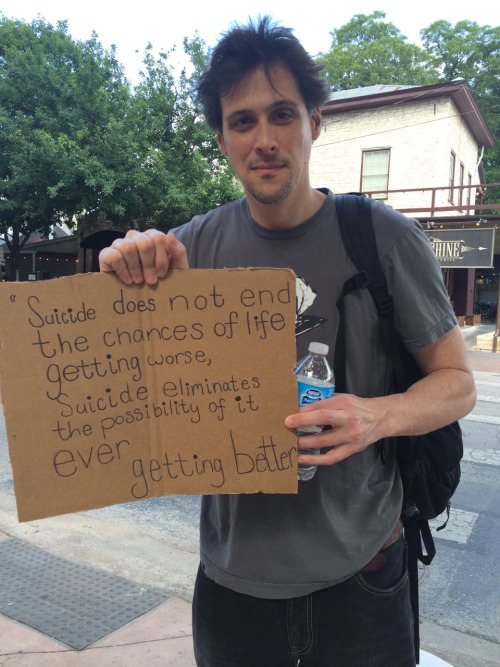 "Suicide does not end
the chances of life
getting worse,
Suicide eliminates
the possibility of it
ever getting better
HINE